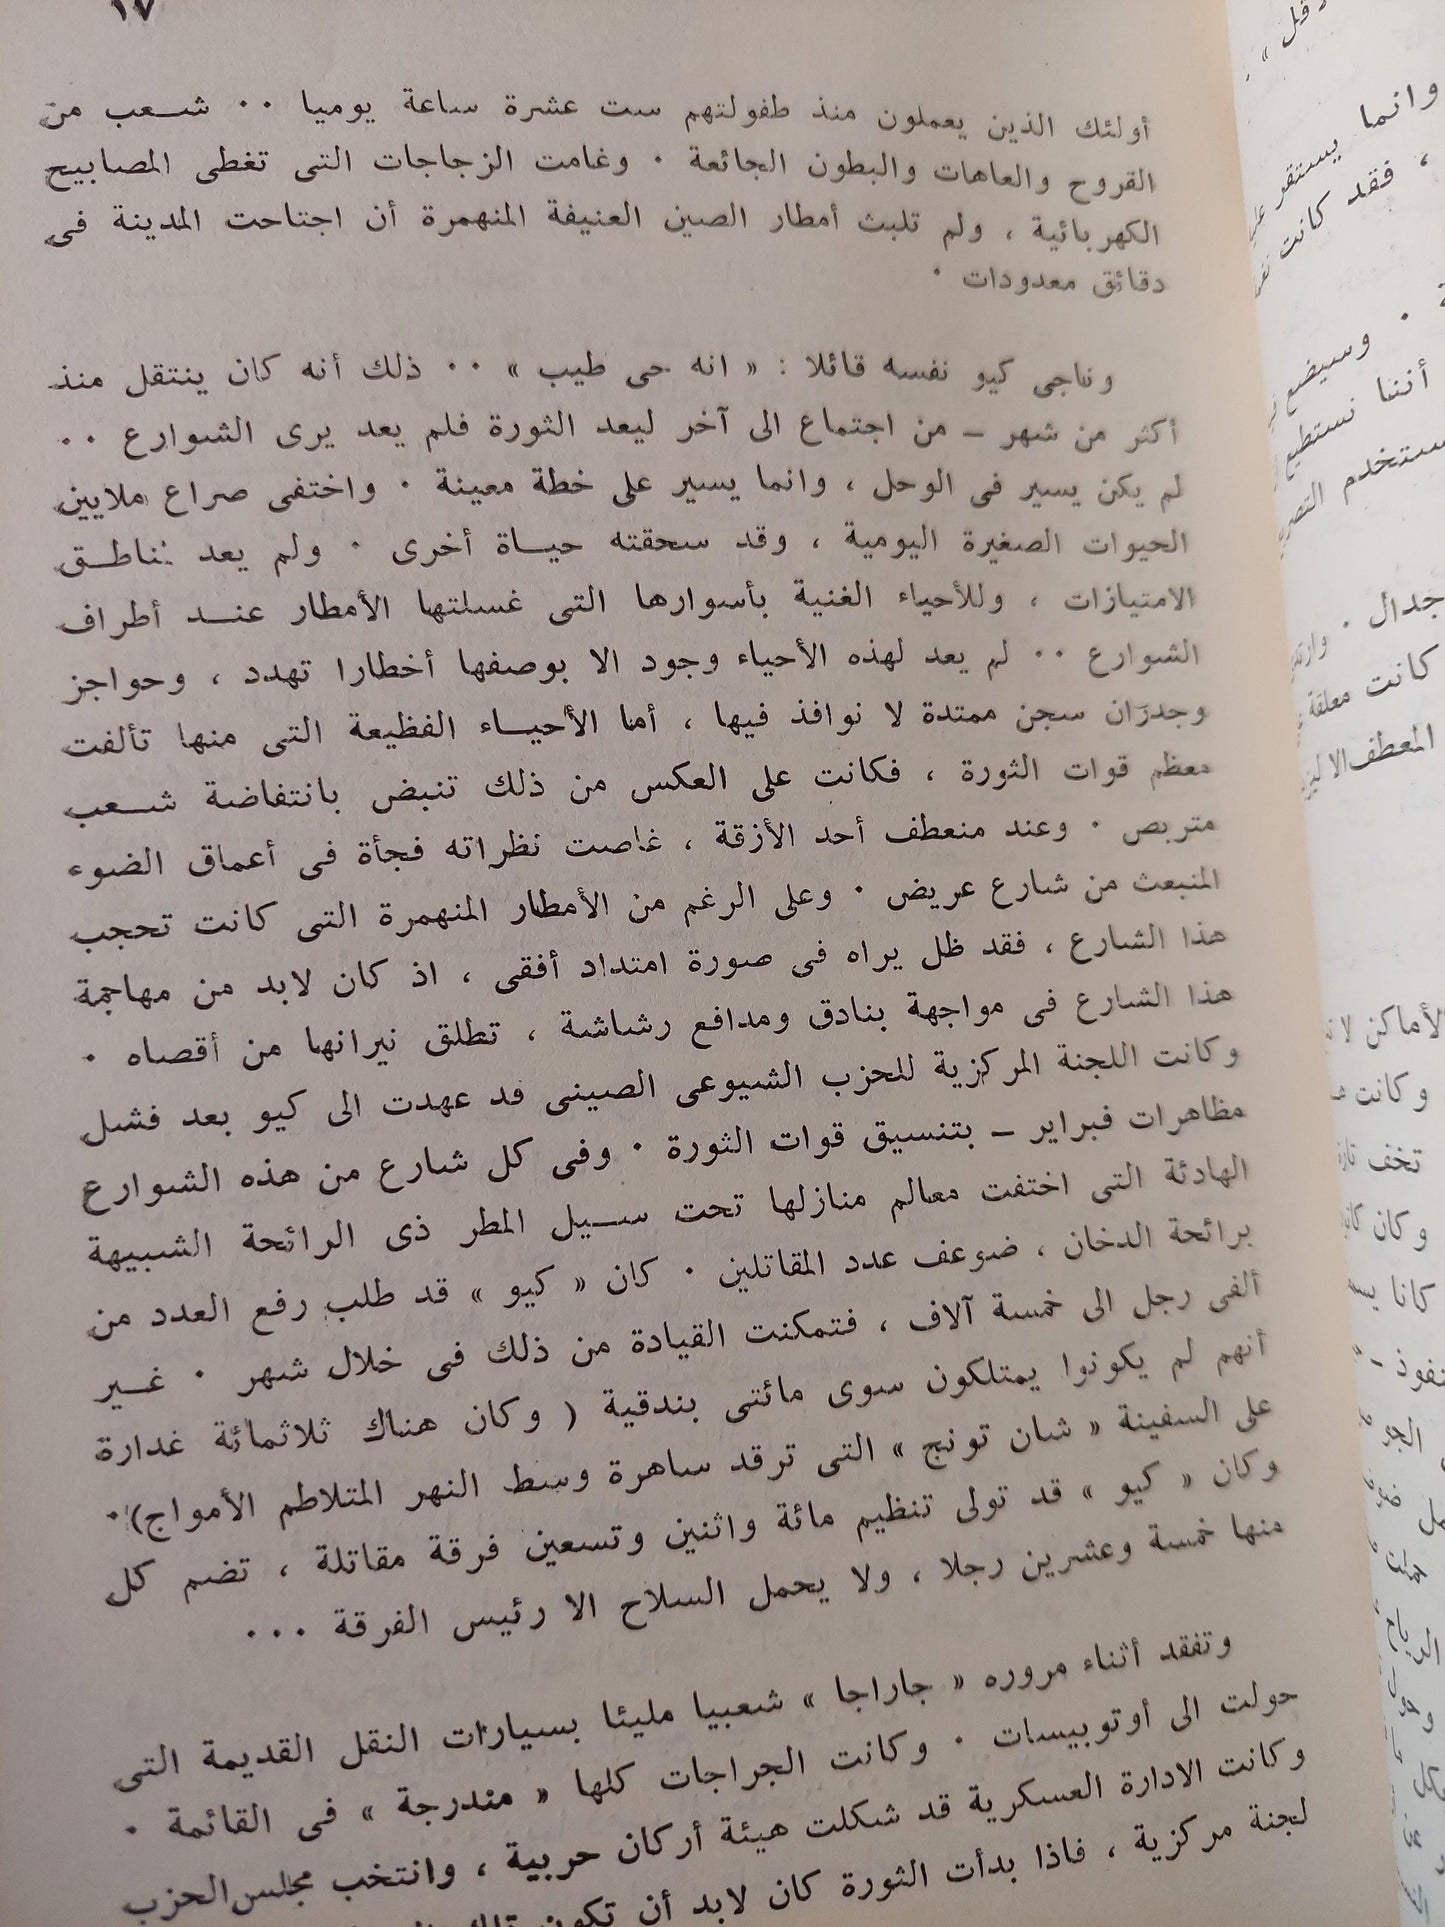 ١٧
أولئك الذين يعملون منذ طفولتهم ست عشرة ساعة يوميا ٠٠ شعب من
القروح والعاهات والبطون الجائعة ٠ وغامت الزجاجات التى تغطى المصابيح
الكهربائية ، ولم تلبث أمطار الصين العنيفة المنهمرة أن اجتاحت المدينة فى
دقائق معدودات ٠
وناجى كيو نفسه قائلا : « انه حى طيب » ٠٠ ذلك أنه كان ينتقل منذ
أكثر من شهر ــ من اجتماع الى آخر ليعد الثورة فلم يعد يرى الشوارع ٠٠
لم يكن يسير فى الوحل ، وانما يسير على خطة معينة ٠ واختفى صراع ملايين
الحيوات الصغيرة اليومية ، وقد سحقته حياة أخرى ٠ ولم يعد لمناطق
الامتيازات ، وللأحياء الغنية بأسوارها التى غسلتها الأمطار عند أطراف
الشوارع ٠٠ لم يعد لهذه الأحياء وجود الا بوصفها أخطارا تهدد ، وحواجز
وجدران سجن ممتدة لا نوافذ فيها ، أما الأحياء الفظيعة التى منها تألفت
معظم قوات الثورة ، فكانت على العكس من ذلك تنبض بانتفاضة شعب
متربص ٠ وعند منعطف أحد الأزقة ، غاصت نظراته فجأة فى أعماق الضوء
المنبعث من شارع عريض ٠ وعلى الرغم من الأمطار المنهمرة التى كانت تحجب
هذا الشارع ، فقد ظل يراه فى صورة امتداد أفقى ، اذ كان لابد من مهاجمة
هذا الشارع فى مواجهة بنادق ومدافع رشاشة ، تطلق نيرانها من أقصاه ٠
وكانت اللجنة المركزية للحزب الشيوعى الصينى قد عهدت الى كيو بعد فشل
مظاهرات فبراير ــ بتنسيق قوات الثورة ٠ وفى كل شارع من هذه الشوارع
الهادئة التى اختفت معالم منازلها تحت سيل المطر ذى الرائحة الشبيهة
برائحة الدخان ، ضوعف عدد المقاتلين ٠ كان « كيو » قد طلب رفع العدد من
ألفى رجل الى خمسة آلاف ، فتمكنت القيادة من ذلك فى خلال شهر ٠ غير
أنهم لم يكونوا يمتلكون سوى مائتى بندقية ( وكان هناك ثلاثمائة غدارة
على السفينة « شان تونج » التى ترقد ساهرة وسط النهر المتلاطم الأمواج) ٠
وكان « كيو » قد تولى تنظيم مائة واثنين وتسعين فرقة مقاتلة ، تضم كل
منها خمسة وعشرين رجلا ، ولا يحمل السلاح الا رئيس الفرقة ٠٠٠
وتفقد أثناء مروره « جاراجا » شعبيا مليئا بسيارات النقل القديمة التى
حولت الى أوتوبيسات ٠ وكانت الجراجات كلها « مندرجة » فى القائمة ٠
وكانت الادارة العسكرية قد شكلت هيئة أركان حربية ، وانتخب مجلس الحزب
لجنة مركزية ، فاذا بدأت الثورة كان لابد أن تكون
وانما يستقر
، فقد كانت
٠ وسيضع
أننا نستطيع
جدال ٠
كانت معلقة
المعطف
وكانت
تخف
وكان
كانا